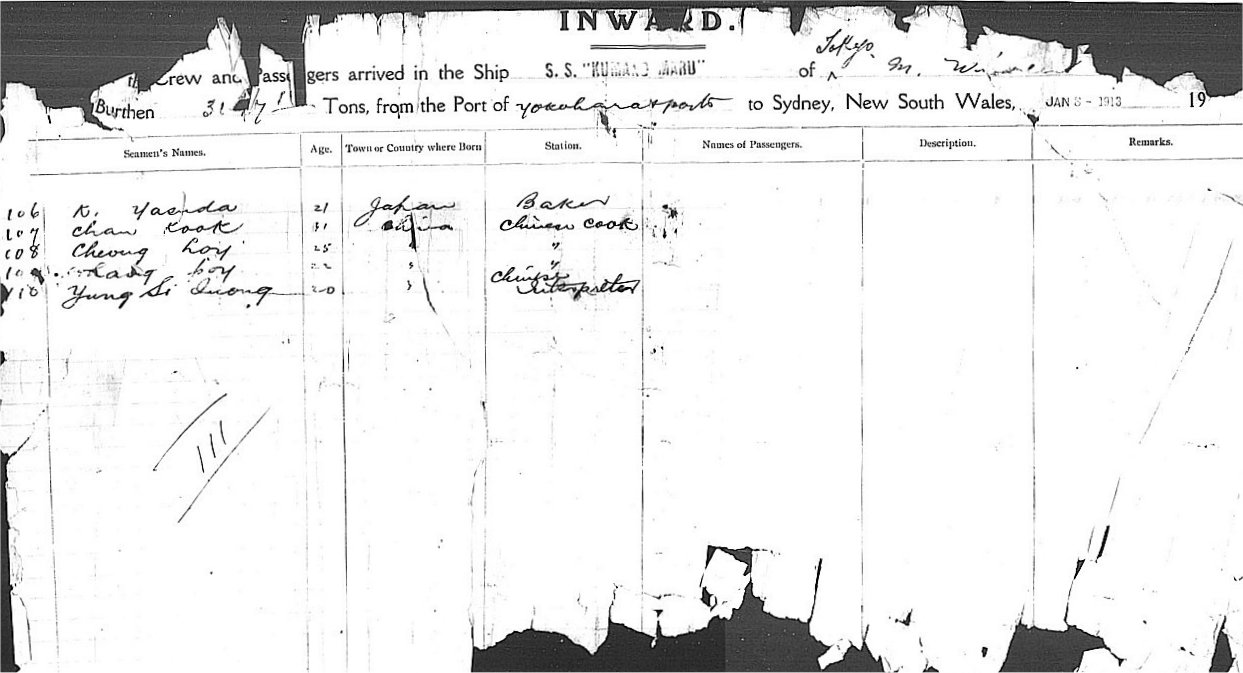 INWARD.
Crew and Passengers arrived in the Ship S. S. "KUMANO MARU" of Tokyo M.
Burthen Tons, from the Port of Yokohama & ports to Sydney, New South Wales, JAN 8 - 1913 19
Seamen's Names. Age. Town or Country where Born Station. Names of Passengers. Description. Remarks.
106 K. Yasuda 21 Japan Baker
107 Chan Kook 31 China Chinese Cook
108 Cheong Loy 25 " "
109 Loy 22 " "
110 Yung Si Quong 20 " Chinese Interpreter
111